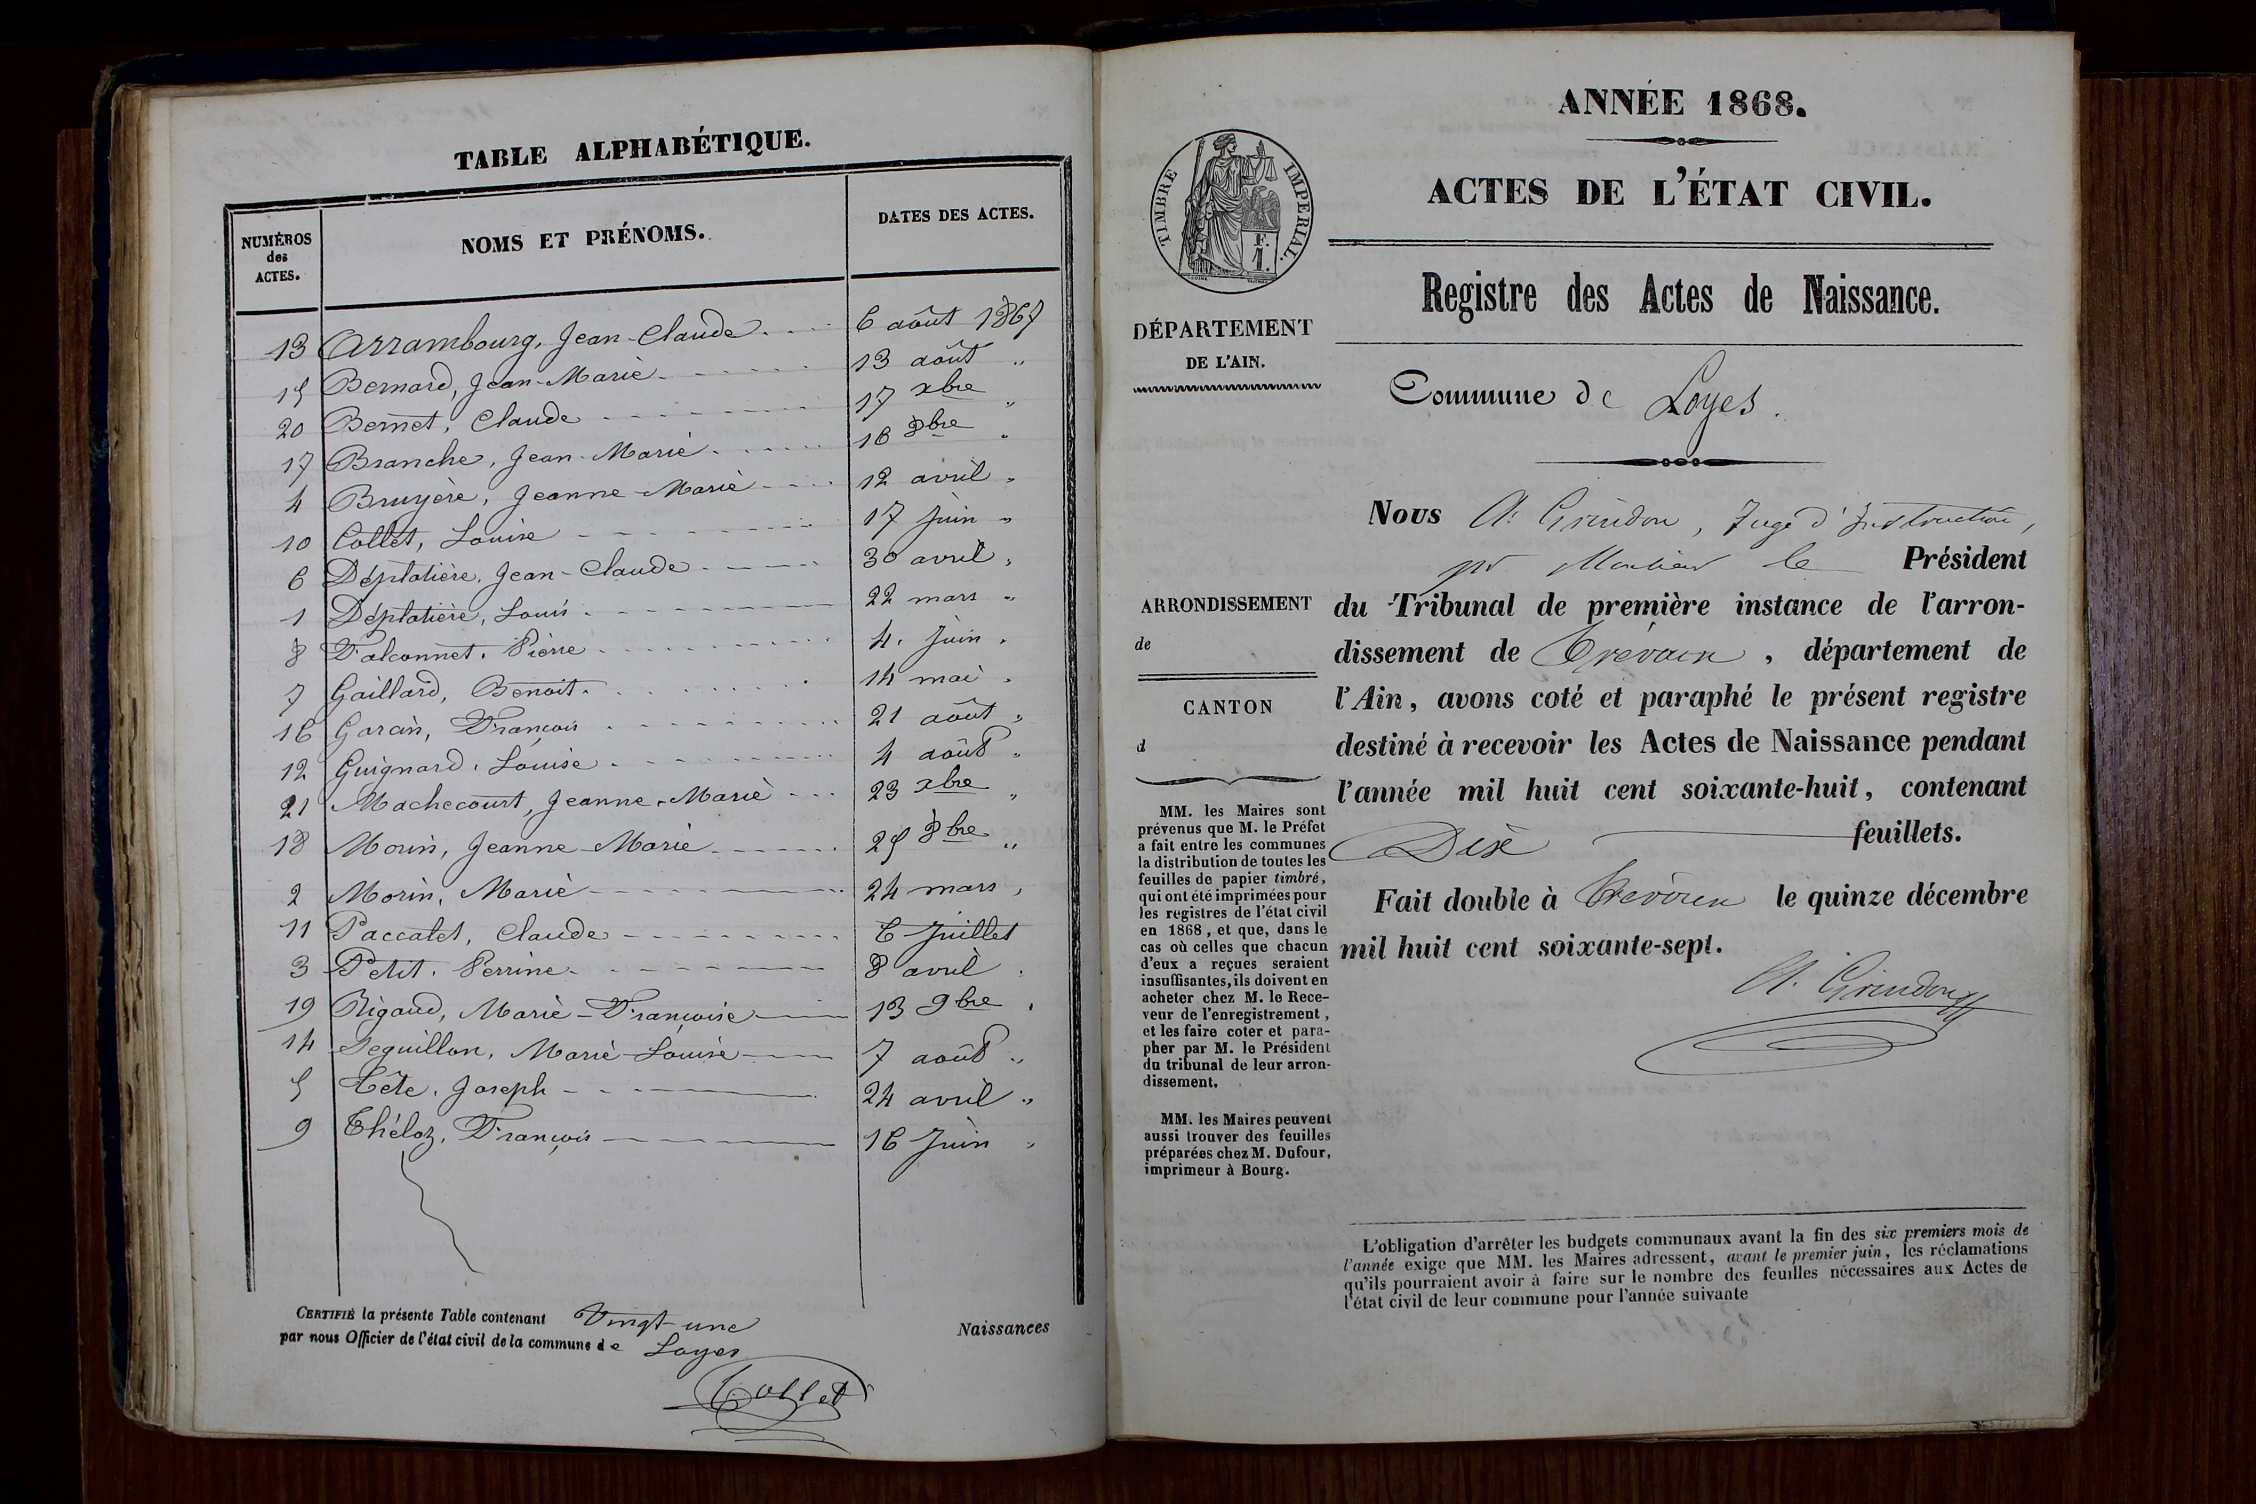 TABLE ALPHABÉTIQUE.
NUMÉROS des ACTES. NOMS ET PRÉNOMS. DATES DES ACTES.
13 Arrambourg, Jean-Claude 6 août 1867
15 Bernard, Jean-Marie 13 août "
20 Bernet, Claude 17 xbre "
17 Branche, Jean-Marie 16 8bre "
4 Bruyère, Jeanne-Marie 12 avril "
10 Collet, Louise 17 Juin "
6 Déplatière, Jean-Claude 30 avril "
1 Déplatière, Louis 22 mars "
8 Falconnet, Pierre 4 Juin "
7 Gaillard, Benoit 14 mai "
16 Garcin, François 21 août "
12 Guignard, Louise 4 août "
21 Machecourt, Jeanne-Marie 23 xbre "
18 Morin, Jeanne-Marie 25 8bre "
2 Morin, Marie 24 mars "
11 Paccalet, Claude 6 Juillet
3 Petit, Perrine 8 avril "
19 Rigaud, Marie-Françoise 13 9bre "
14 Seguillon, Marie-Louise 7 août "
5 Tête, Joseph 24 avril "
9 Théloz, François 16 Juin "
CERTIFIÉ la présente Table contenant Vingt-une Naissances
par nous Officier de l'état civil de la commune de Loyes
Collet
ANNÉE 1868.
ACTES DE L'ÉTAT CIVIL.
TIMBRE IMPERIAL.
F.
1.
Registre des Actes de Naissance.
DÉPARTEMENT
DE L'AIN.
Commune de Loyes.
Nous A. Grindon, Juge d'Instruction,
pr Monsieur le Président
du Tribunal de première instance de l'arron-
dissement de Trévoux, département de
l'Ain, avons coté et paraphé le présent registre
destiné à recevoir les Actes de Naissance pendant
l'année mil huit cent soixante-huit, contenant
Dix feuillets.
Fait double à Trévoux le quinze décembre
mil huit cent soixante-sept.
A. Grindon
ARRONDISSEMENT
de
CANTON
d
MM. les Maires sont
prévenus que M. le Préfet
a fait entre les communes
la distribution de toutes les
feuilles de papier timbré,
qui ont été imprimées pour
les registres de l'état civil
en 1868, et que, dans le
cas où celles que chacun
d'eux a reçues seraient
insuffisantes, ils doivent en
acheter chez M. le Rece-
veur de l'enregistrement,
et les faire coter et para-
pher par M. le Président
du tribunal de leur arron-
dissement.
MM. les Maires peuvent
aussi trouver des feuilles
préparées chez M. Dufour,
imprimeur à Bourg.
L'obligation d'arrêter les budgets communaux avant la fin des six premiers mois de
l'année exige que MM. les Maires adressent, avant le premier juin, les réclamations
qu'ils pourraient avoir à faire sur le nombre des feuilles nécessaires aux Actes de
l'état civil de leur commune pour l'année suivante